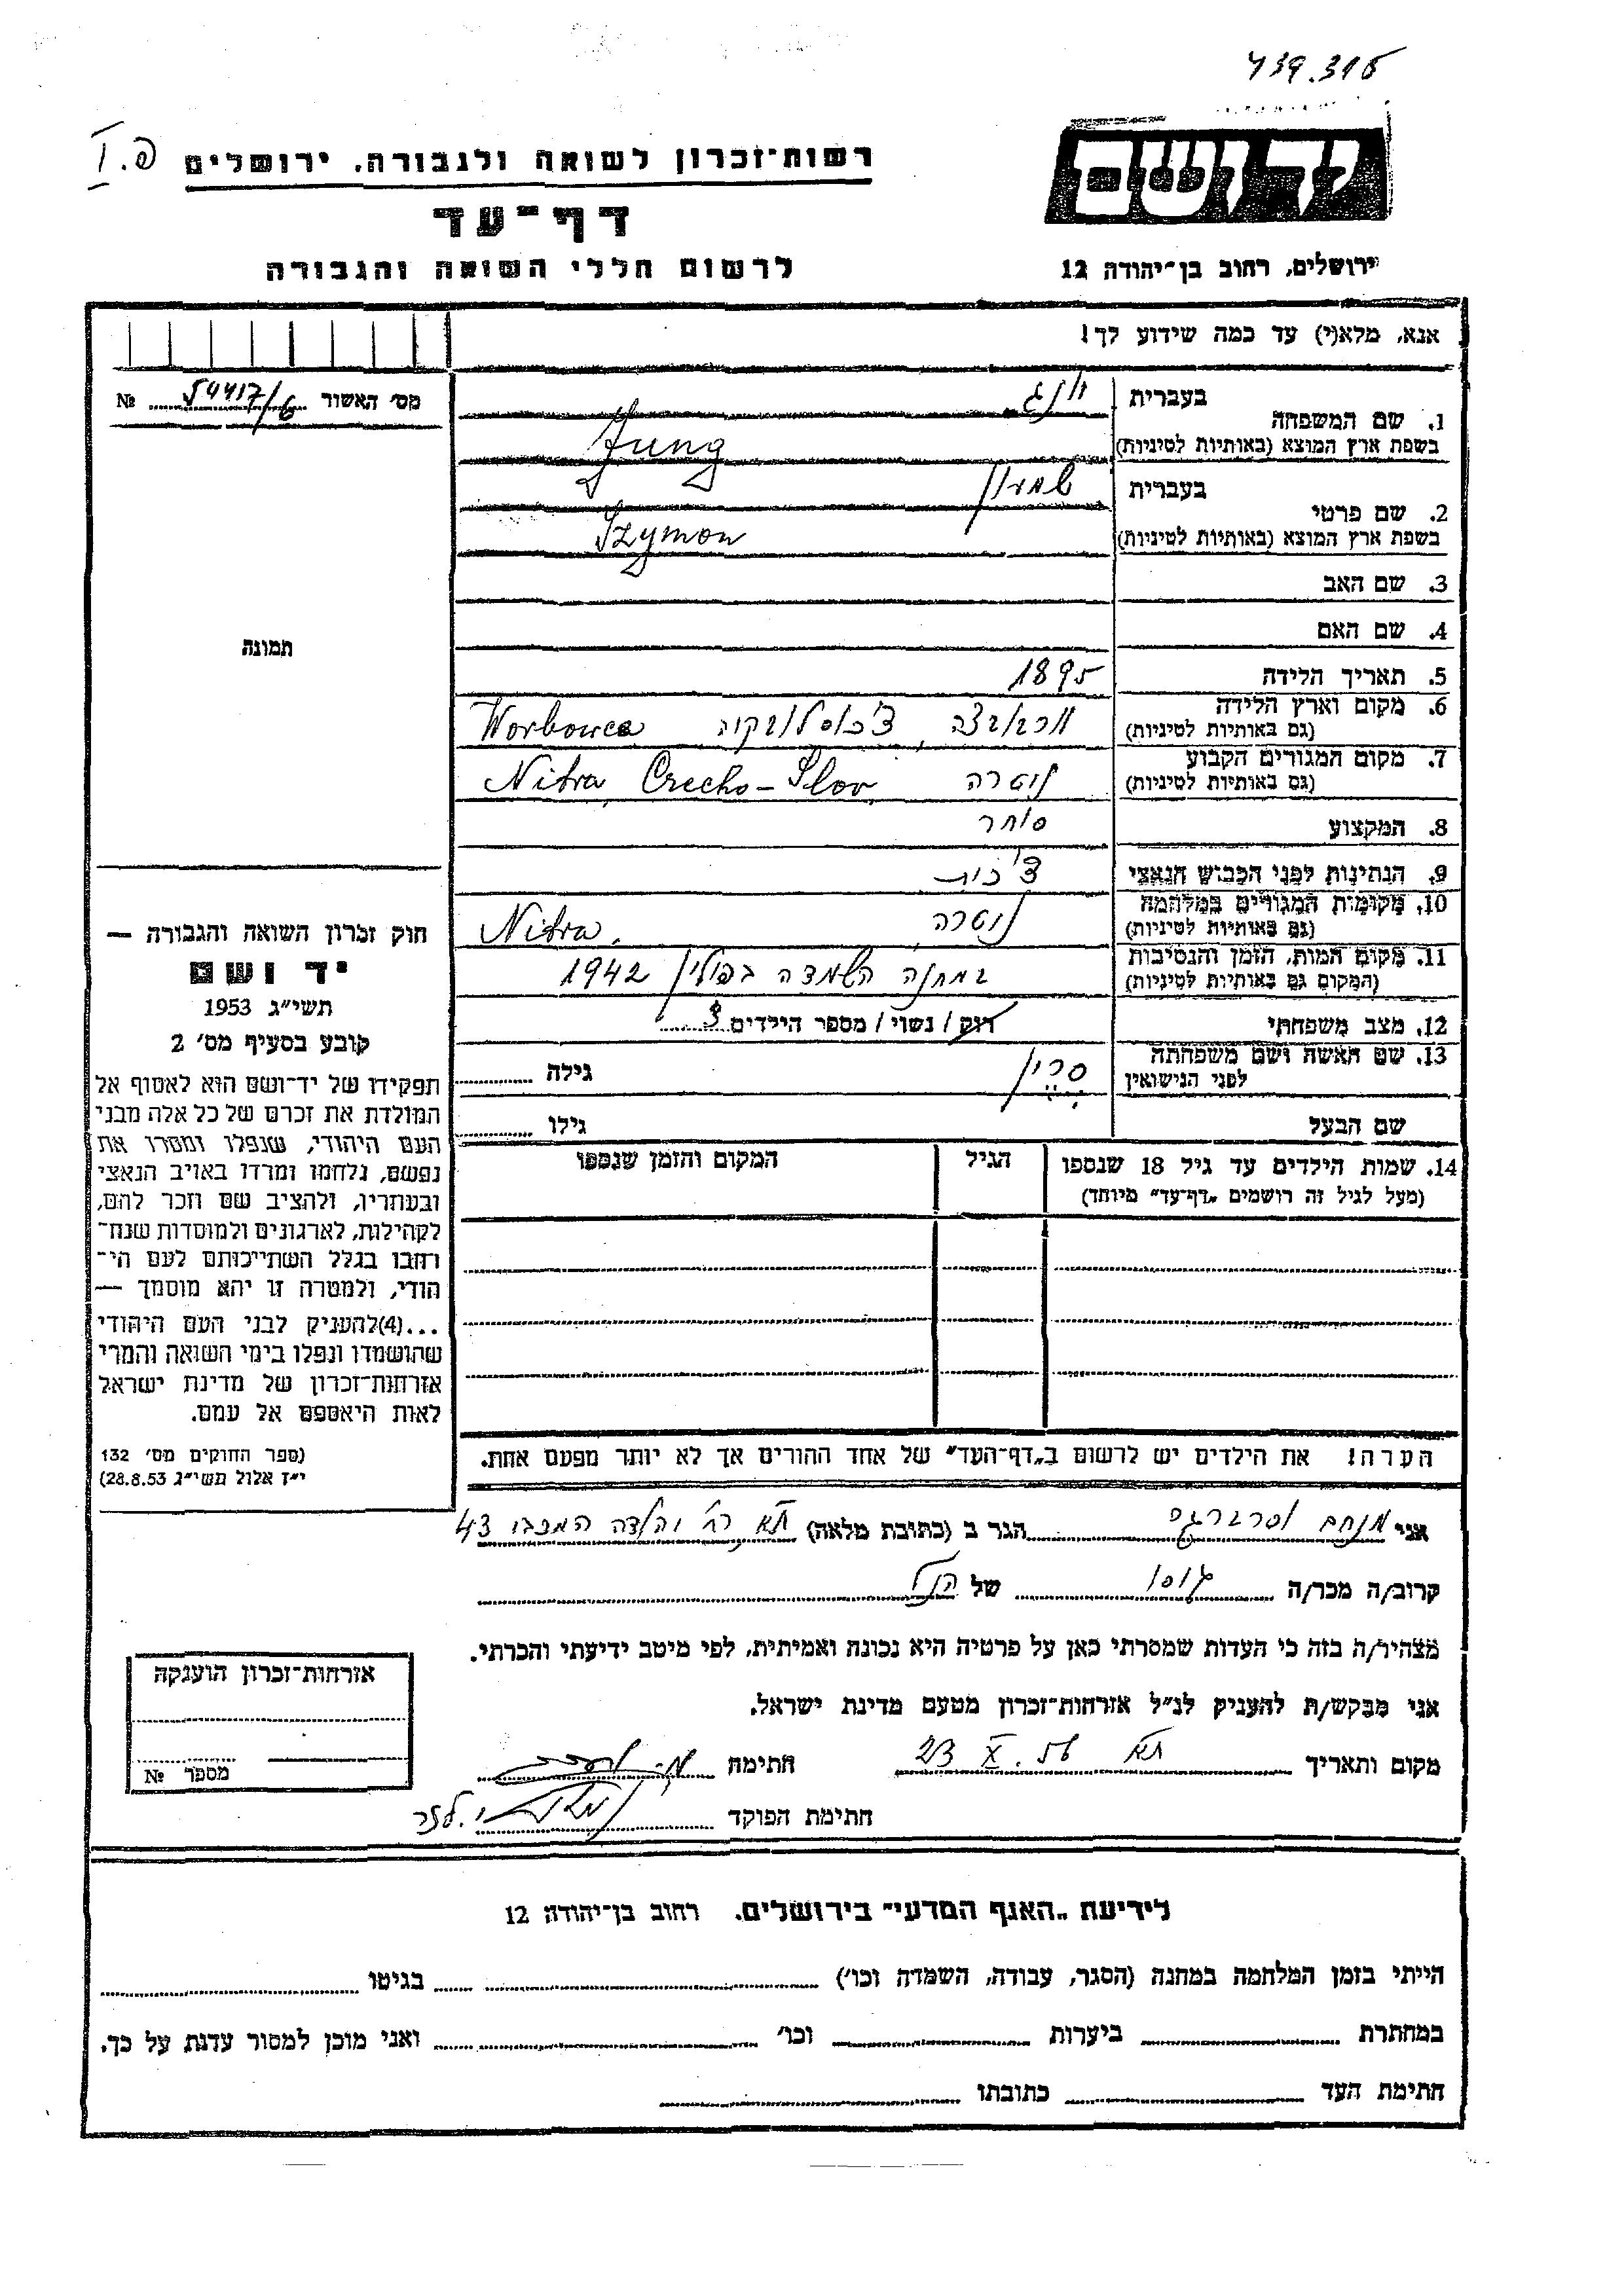 439.316
יד ושם
רשות־זכרון לשואה ולגבורה, ירושלים
פ. I
דף־עד
ירושלים, רחוב בן־יהודה 12
לרשום חללי השואה והגבורה
אנא, מלא(י) עד כמה שידוע לך!
מס׳ האשור 54417/6 №
1. שם המשפחה
בעברית יונג
בשפת ארץ המוצא (באותיות לטיניות) Jung
2. שם פרטי
בעברית שמעון
בשפת ארץ המוצא (באותיות לטיניות) Szymon
3. שם האב
4. שם האם
תמונה
5. תאריך הלידה 1895
6. מקום וארץ הלידה
(גם באותיות לטיניות) צ׳כוסלובקיה Worbowce
7. מקום המגורים הקבוע
(גם באותיות לטיניות) ניטרה Nitra, Czecho-Slov
8. המקצוע סוחר
9. הנתינות לפני הכבוש הנאצי צ׳כית
10. מקומות המגורים במלחמה
(גם באותיות לטיניות) ניטרה Nitra.
11. מקום המות, הזמן והנסיבות
(המקום גם באותיות לטיניות) במחנה השמדה בפולין 1942
12. מצב משפחתי רוק / נשוי / מספר הילדים 3
13. שם האשה ושם משפחתה
לפני הנישואין גילה
שם הבעל גילו
14. שמות הילדים עד גיל 18 שנספו
(מעל לגיל זה רושמים „דף־עד״ מיוחד)
הגיל
המקום והזמן שנספו
חוק זכרון השואה והגבורה —
יד ושם
תשי״ג 1953
קובע בסעיף מס׳ 2
תפקידו של יד־ושם הוא לאסוף אל
המולדת את זכרם של כל אלה מבני
העם היהודי, שנפלו ומסרו את
נפשם, נלחמו ומרדו באויב הנאצי
ובעוזריו, ולהציב שם וזכר להם,
לקהילות, לארגונים ולמוסדות שנח־
רבו בגלל השתייכותם לעם הי־
הודי, ולמטרה זו יהא מוסמך —
...(4)להעניק לבני העם היהודי
שהושמדו ונפלו בימי השואה והמרי
אזרחות־זכרון של מדינת ישראל
לאות היאספם אל עמם.
(ספר החוקים מס׳ 132
י״ז אלול תשי״ג 28.8.53)
הערה! את הילדים יש לרשום ב„דף־העד״ של אחד ההורים אך לא יותר מפעם אחת.
אני מנחם הגר ב (כתובת מלאה) תא רח׳ יהודה המכבי 43
קרוב/ה מכר/ה גיסו של הנ״ל
מצהיר/ה בזה כי העדות שמסרתי כאן על פרטיה היא נכונה ואמיתית, לפי מיטב ידיעתי והכרתי.
אני מבקש/ת להעניק לנ״ל אזרחות־זכרון מטעם מדינת ישראל.
מקום ותאריך תא 23 X. 56 חתימה
חתימת הפוקד
אזרחות־זכרון הוענקה
מספר №
לידיעת „האגף המדעי״ בירושלים. רחוב בן־יהודה 12
הייתי בזמן המלחמה במחנה (הסגר, עבודה, השמדה וכו׳) בגיטו
במחתרת ביערות וכו׳ ואני מוכן למסור עדות על כך.
חתימת העד כתובתו